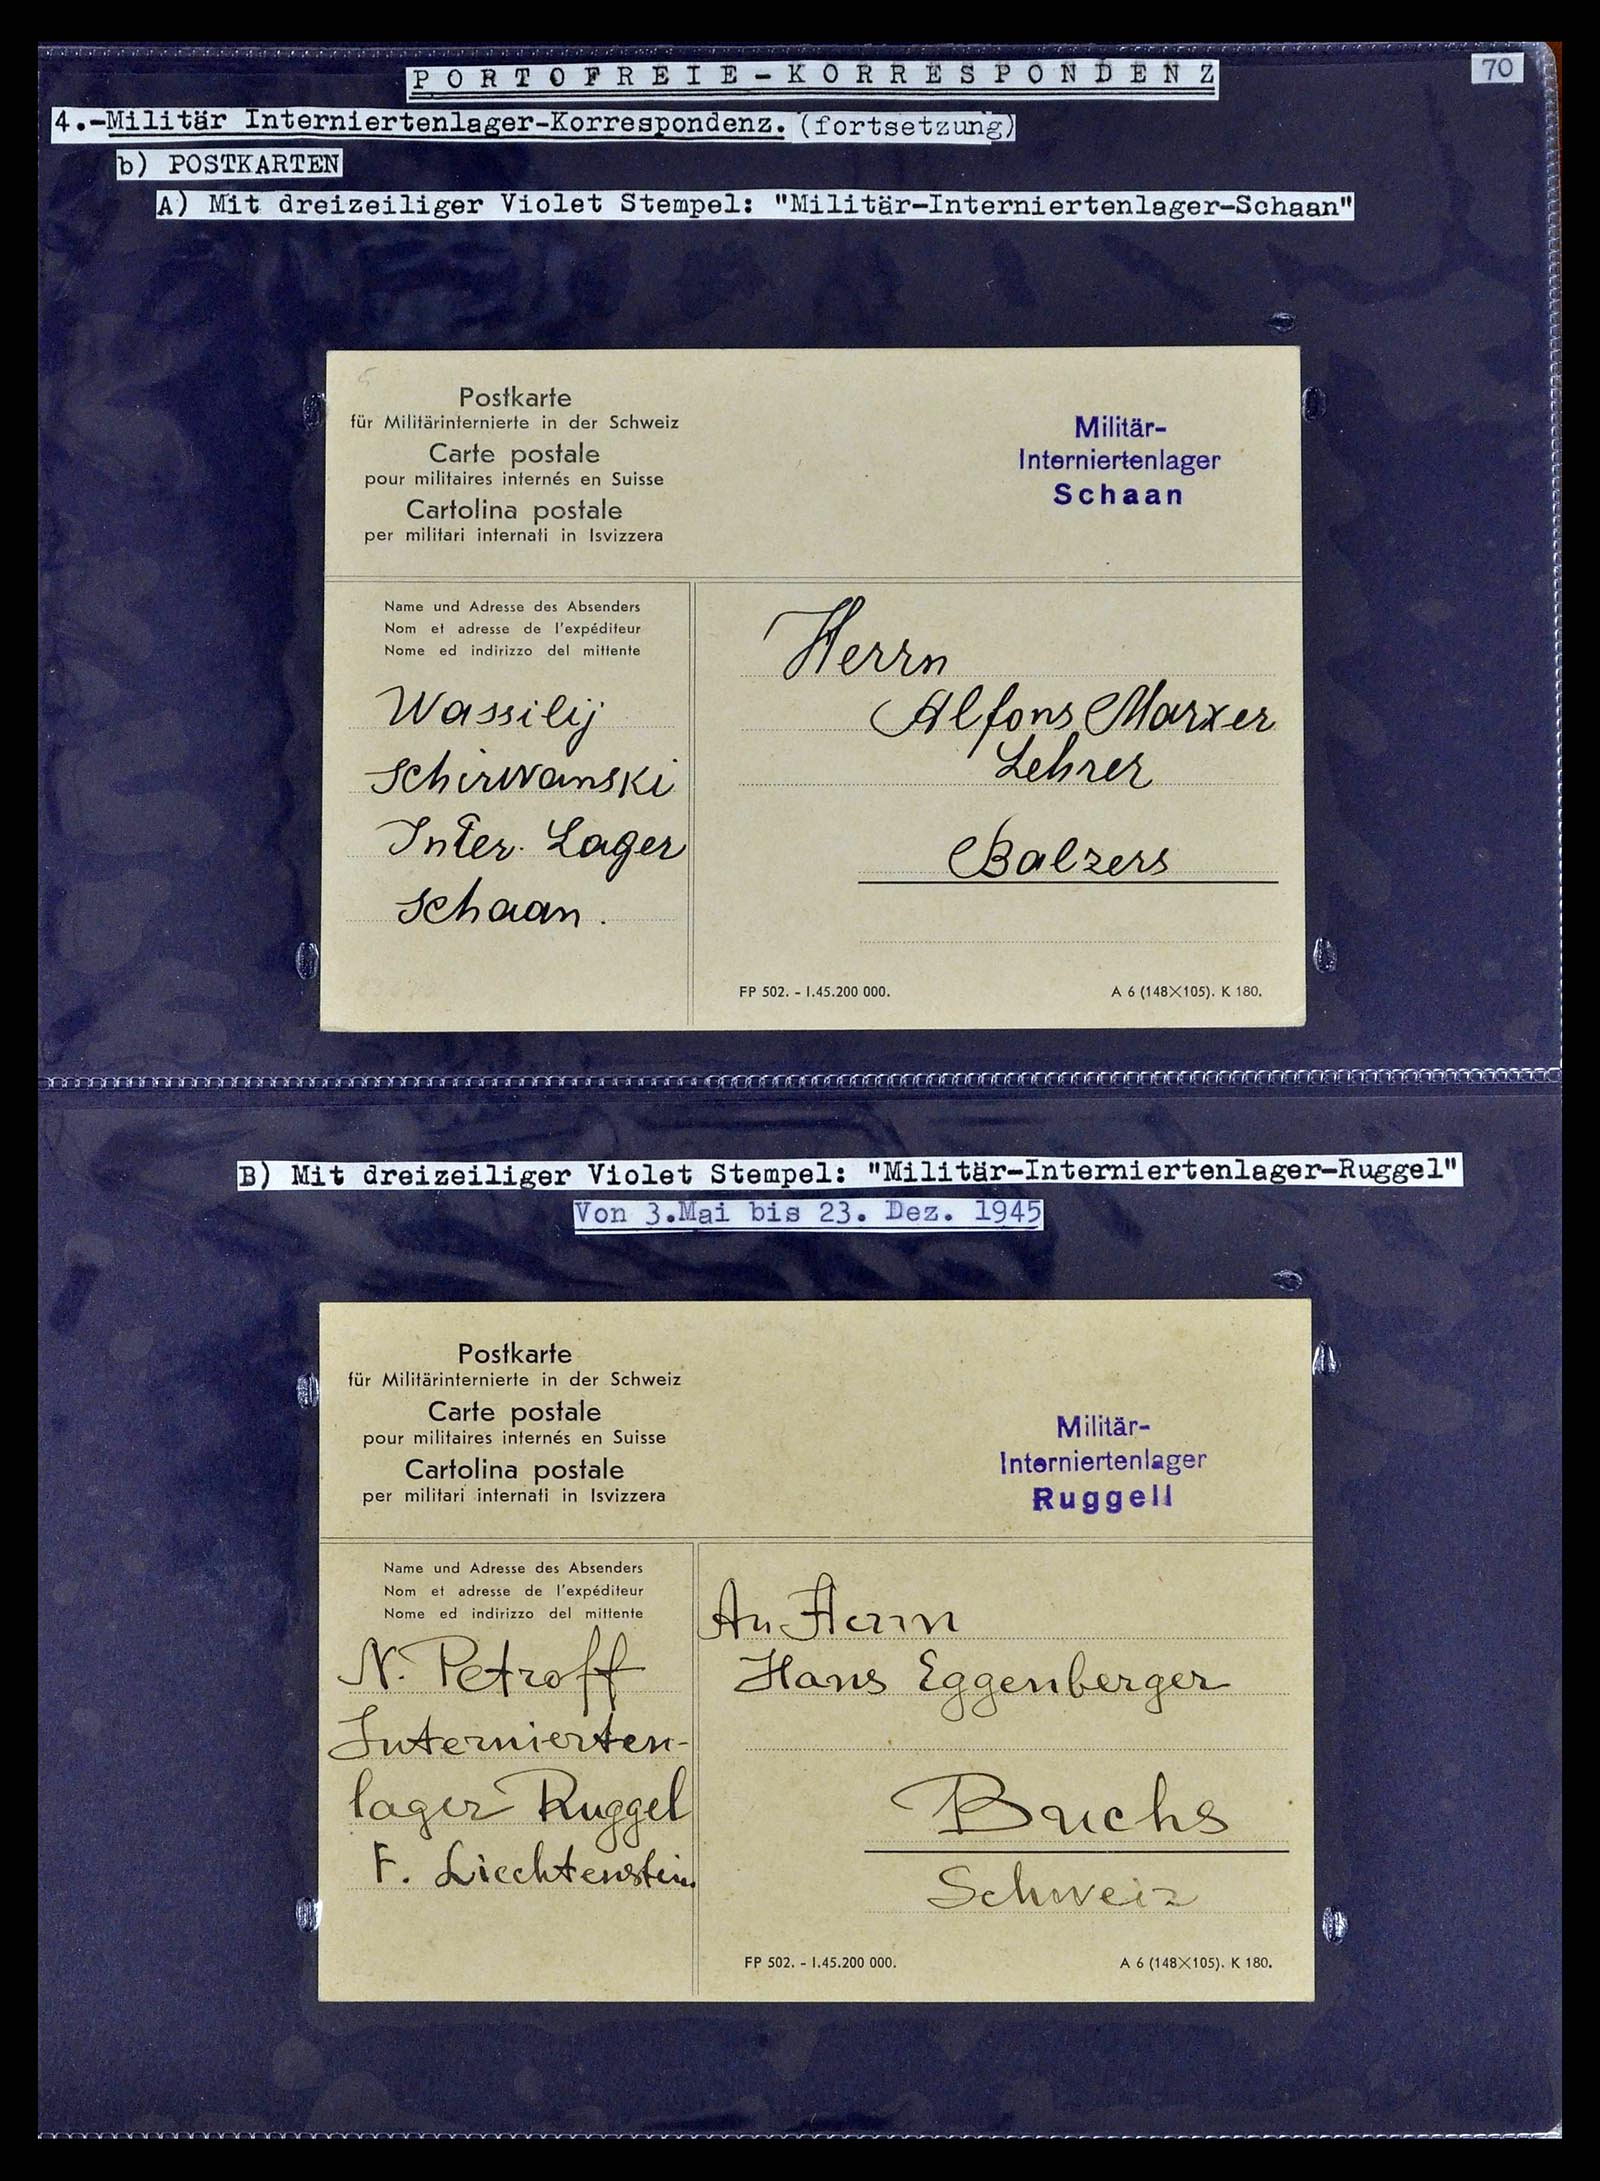 PORTOFREIE-KORRESPONDENZ
70
4.-Militär Interniertenlager-Korrespondenz. (fortsetzung)
b) POSTKARTEN
A) Mit dreizeiliger Violet Stempel: "Militär-Interniertenlager-Schaan"
Postkarte
für Militärinternierte in der Schweiz
Carte postale
pour militaires internés en Suisse
Cartolina postale
per militari internati in Isvizzera
Militär-
Interniertenlager
Schaan
Name und Adresse des Absenders
Nom et adresse de l'expéditeur
Nome ed indirizzo del mittente
Wassilij
Schirwanski
Inter. Lager
Schaan.
Herrn
Alfons Marxer
Lehrer
Balzers
FP 502. - I.45.200 000.
A 6 (148×105). K 180.
B) Mit dreizeiliger Violet Stempel: "Militär-Interniertenlager-Ruggel"
Von 3.Mai bis 23. Dez. 1945
Postkarte
für Militärinternierte in der Schweiz
Carte postale
pour militaires internés en Suisse
Cartolina postale
per militari internati in Isvizzera
Militär-
Interniertenlager
Ruggell
Name und Adresse des Absenders
Nom et adresse de l'expéditeur
Nome ed indirizzo del mittente
N. Petroff
Internierten-
lager Ruggel
F. Liechtenstein
An Herrn
Hans Eggenberger
Buchs
Schweiz
FP 502. - I.45.200 000.
A 6 (148×105). K 180.